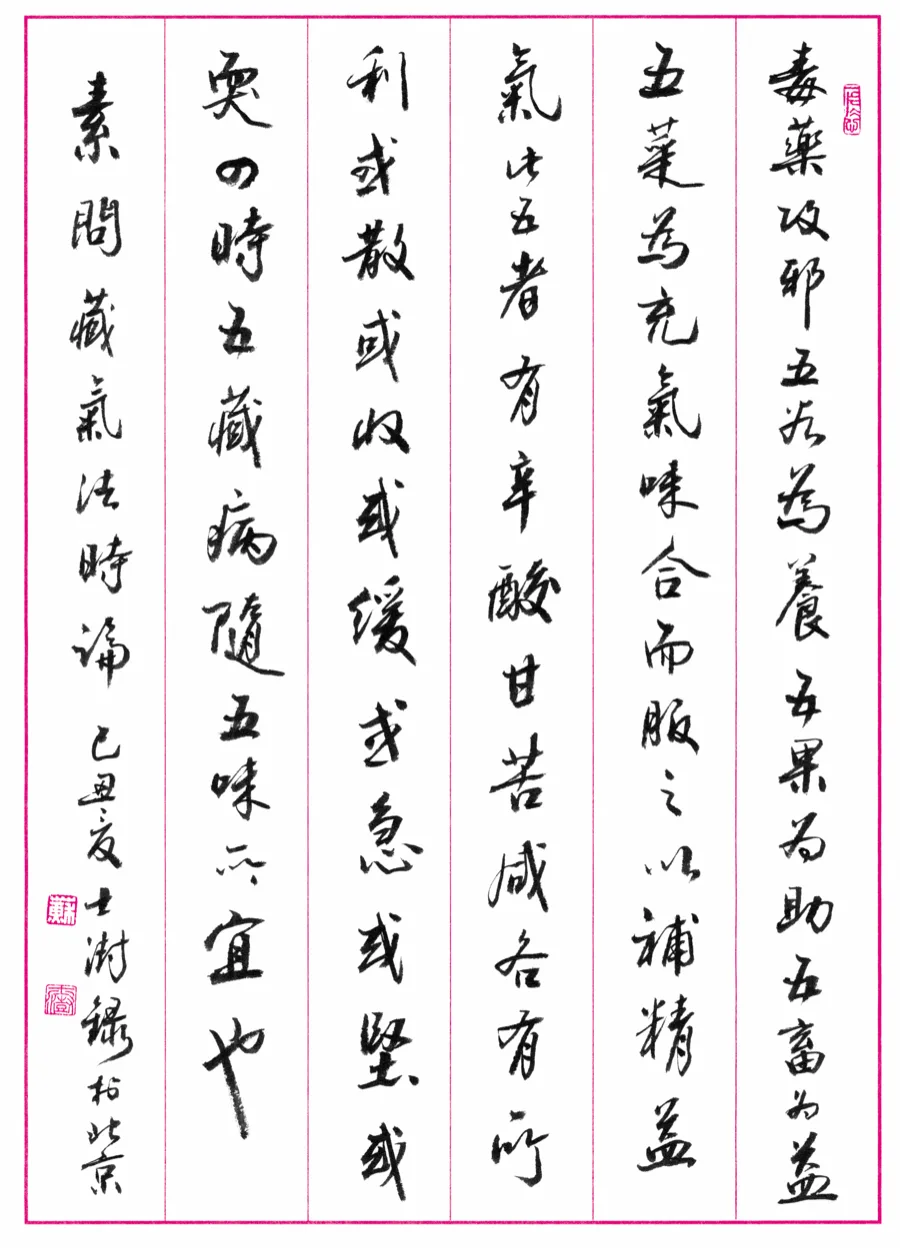 毒藥攻邪五谷為養五果为助五畜为益
五菜為充氣味合而服之以補精益
氣此五者有辛酸甘苦咸各有所
利或散或收或緩或急或堅或
耎四時五藏病隨五味所宜也
素問藏氣法時論 己丑夏士澍録於北京
蘇